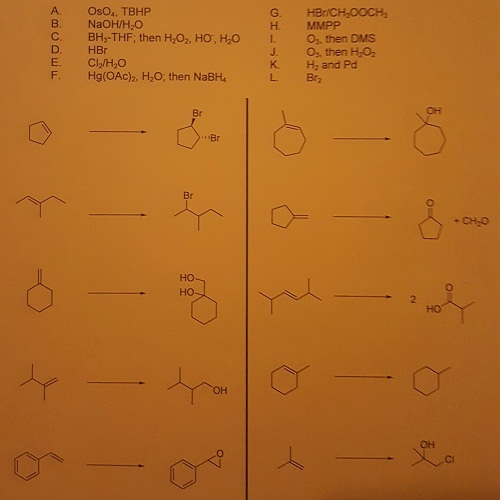 A. OsO₄, TBHP
B. NaOH/H₂O
C. BH₃-THF; then H₂O₂, HO⁻, H₂O
D. HBr
E. Cl₂/H₂O
F. Hg(OAc)₂, H₂O; then NaBH₄
G. HBr/CH₃OOCH₃
H. MMPP
I. O₃, then DMS
J. O₃, then H₂O₂
K. H₂ and Pd
L. Br₂
Br
Br
OH
Br
O
+ CH₂O
HO
HO
2
O
HO
OH
O
OH
Cl